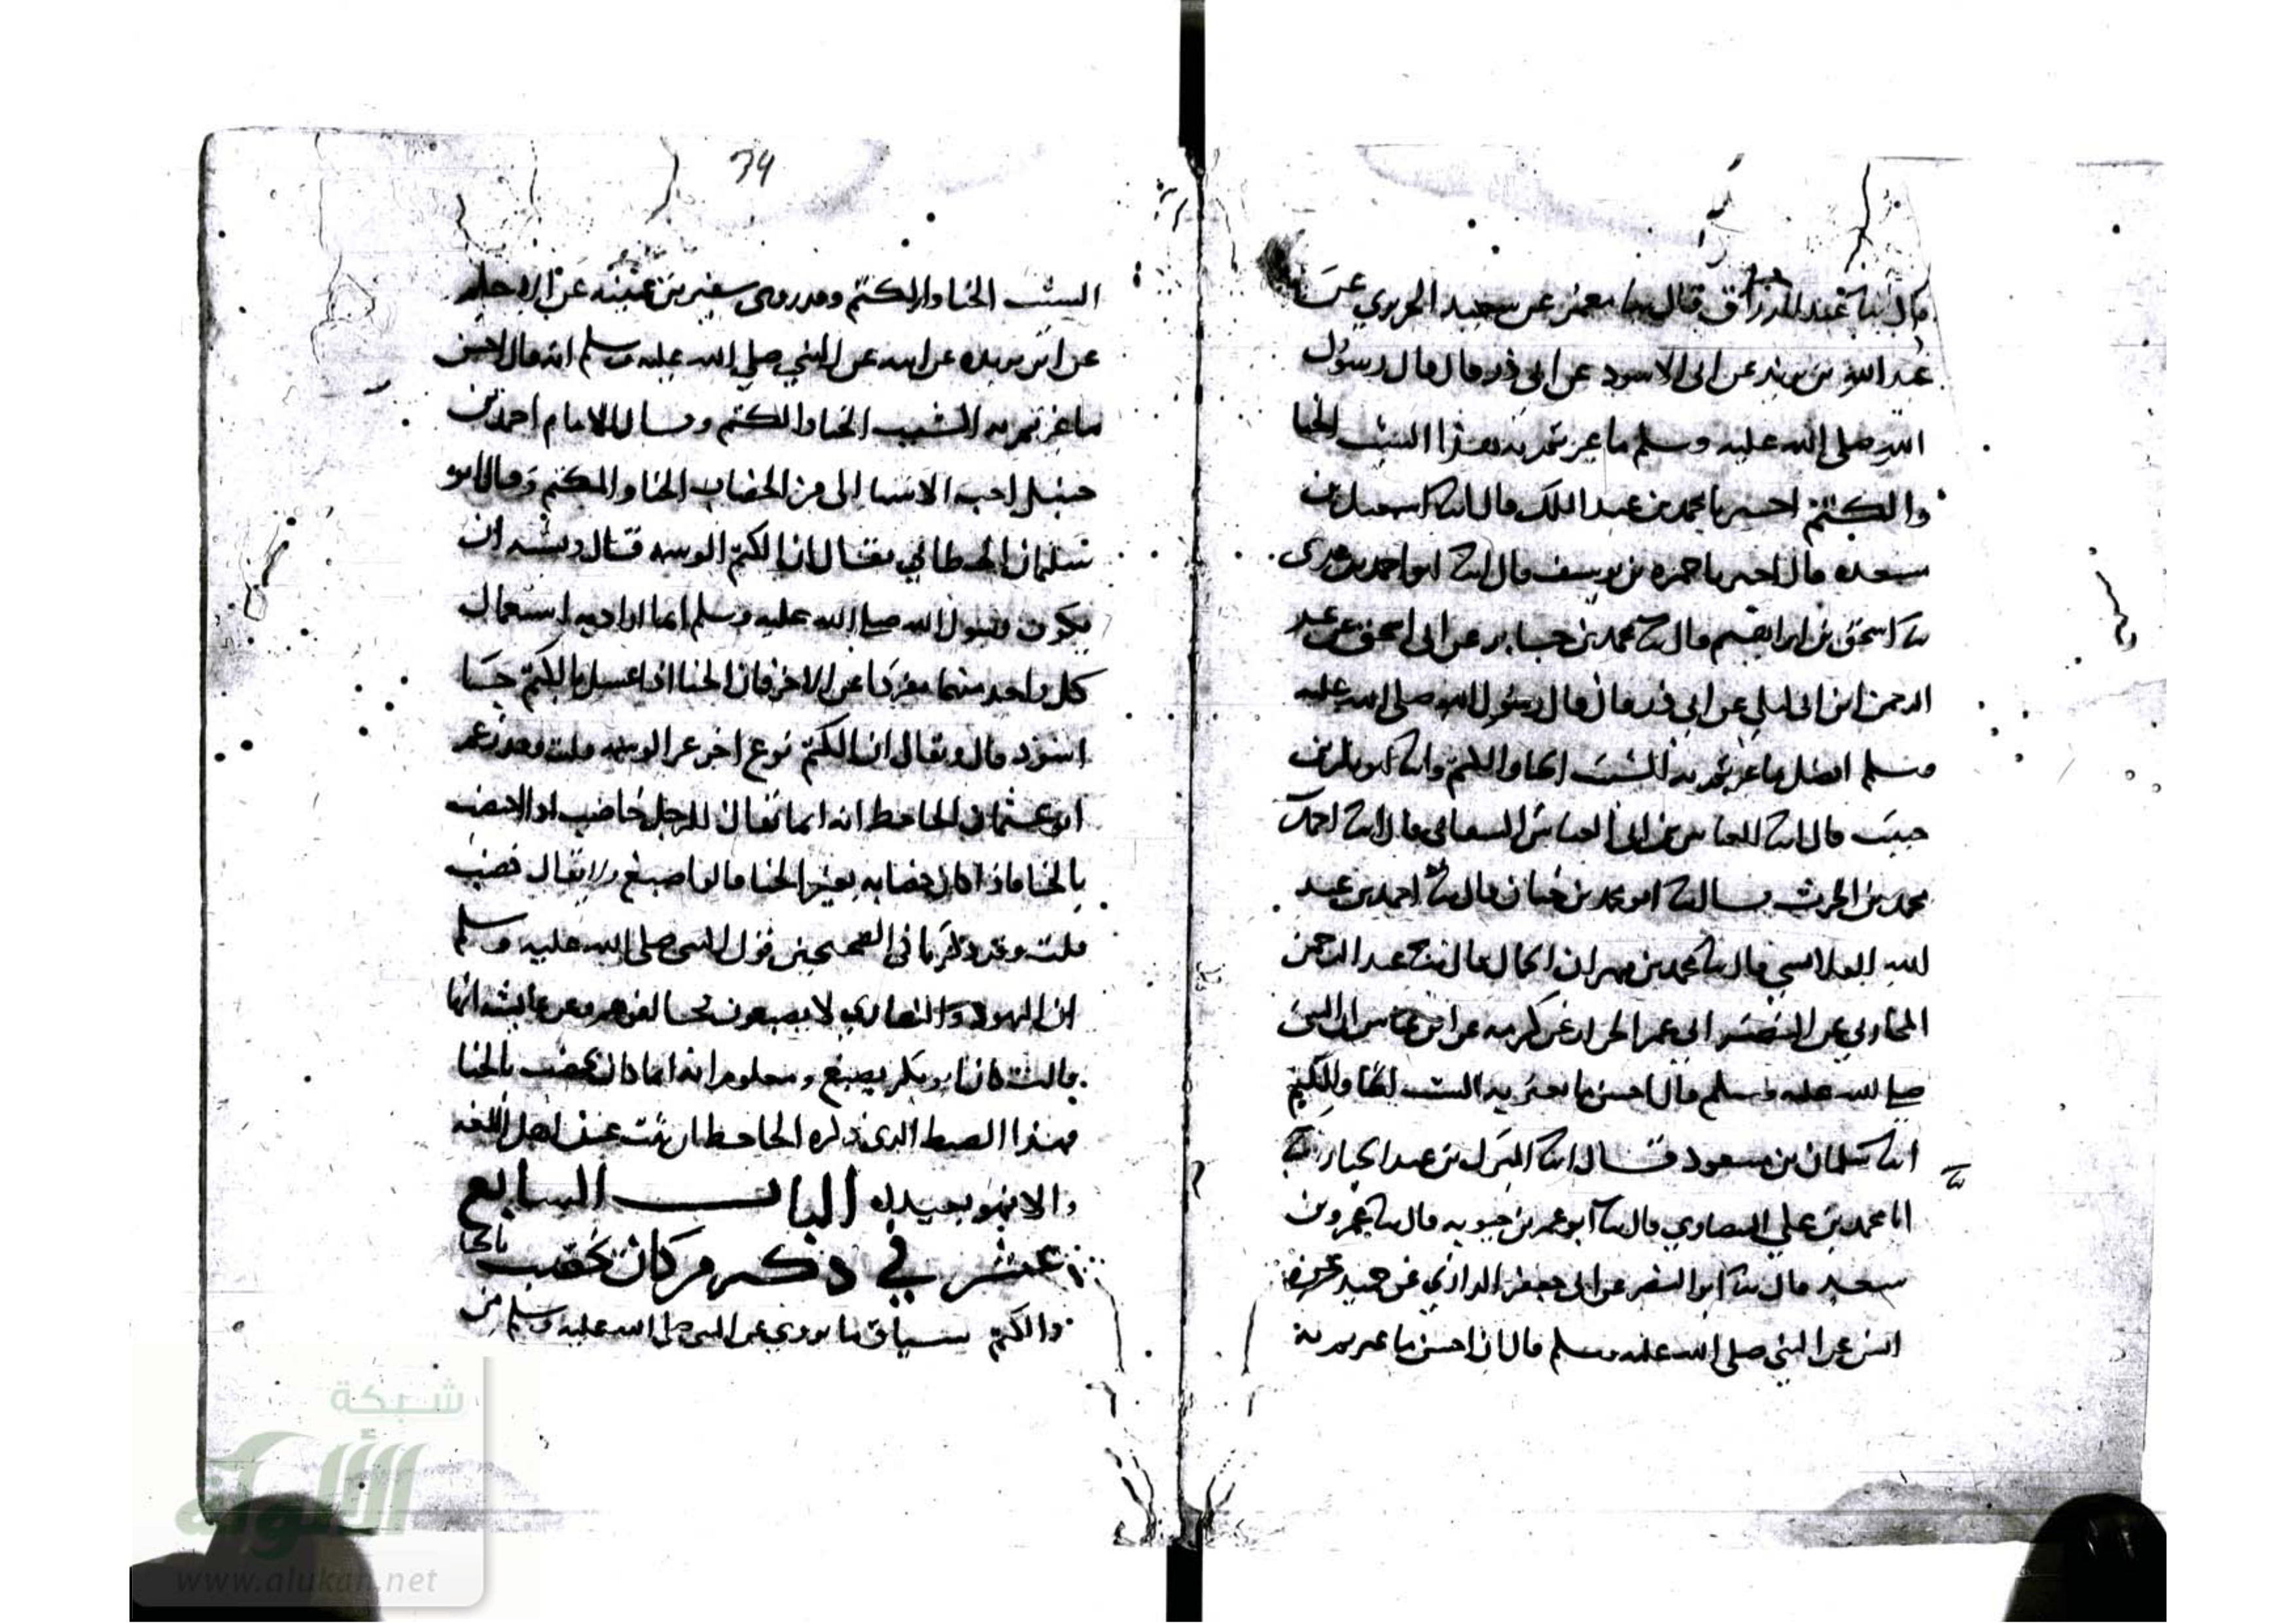 قال ابنا عبد الرزاق قال ابنا معمر عن سعيد الجريري عن
عبد الله بن بريده عن ابى الاسود عن ابي ذر قال قال رسول
الله صلى الله عليه وسلم ما غير تم به هذا الشيب الحنا
والكتم اخبرنا محمد بن عبد الملك قال ابنا اسمعيل بن
مسعده قال اخبرنا حمزه بن يوسف قال ابنا ابو احمد بن عدى
ثنا اسحق بن ابراهيم قال ثنا محمد بن جابر عن ابى اسحق عن عبد
الرحمن ابن ابى ليلى عن ابي ذر قال قال رسول الله صلى الله عليه
وسلم افضل ما غيرتم به الشيب الحنا والكتم وابنا ابو بكر بن
حبيب قال ابنا قال ابنا احمد بن
محمد بن الحرث قال ثنا ابو محمد بن حيان قال ثنا احمد بن عبد
الله قال ثنا محمد بن مهران الجمال قال ثنا عبد الرحمن
المحاربي عن النضر ابى عمر الخزاز عن عكرمه عن ابن عباس ان النبى
صلى الله عليه وسلم قال احسن ما يغير به الشيب الحنا والكتم
ابنا سلمان بن مسعود قال ابنا المبرك بن عبد الجبار ثنا
انا محمد بن علي الصاوري قال ثنا ابو عمر بن حيويه قال ثنا عمرو بن
سعيد قال ثنا ابو النضر عن ابى جعفر الرازي عن حميد عن
انس عن النبي صلى الله عليه وسلم قال ان احسن ما غيرتم به
34
الشيب الحنا والكتم وقد روى سفين بن عيينه عن الاجلح
عن ابن بريده عن ابيه عن النبي صلى الله عليه وسلم انه قال احسن
ما غيرتم به الشيب الحنا والكتم وقال الامام احمد بن
حنبل احب الاشيا الى من الخضاب الحنا والكتم وقال ابو
سليمان الخطابي يقال ان الكتم الوسمه قال ويشبه ان
يكون رسول الله صلى الله عليه وسلم انما اراد به استعمال
كل واحد منهما مفردا عن الاخر فان الحنا اذا غسل بالكتم جا
اسود قال ويقال ان الكتم نوع اخر غير الوسمه قلت وقد زعم
ابو عثمان الجاحظ انه انما يقال للرجل خاضب اذا اخضب
بالحنا فاذا كان خضابه بغير الحنا قالوا صبغ ولا يقال خضب
قلت وقد ذكرنا في الصحيحين قول النبي صلى الله عليه وسلم
ان اليهود والنصاري لا يصبغون فخالفوهم وعن عايشه انها
قالت كان ابو بكر يصبغ ومعلوم انه انما كان يخضب بالحنا
فهذا الضبط الذى ذكره الجاحظ ان ثبت عند اهل اللغه
والا فهو بعيد لله الباب السابع
عشر في ذكر من كان يخضب بالحنا
والكتم سياق ما يروي عن النبي صلى الله عليه وسلم من
شبكة
الألوكة
www.alukah.net